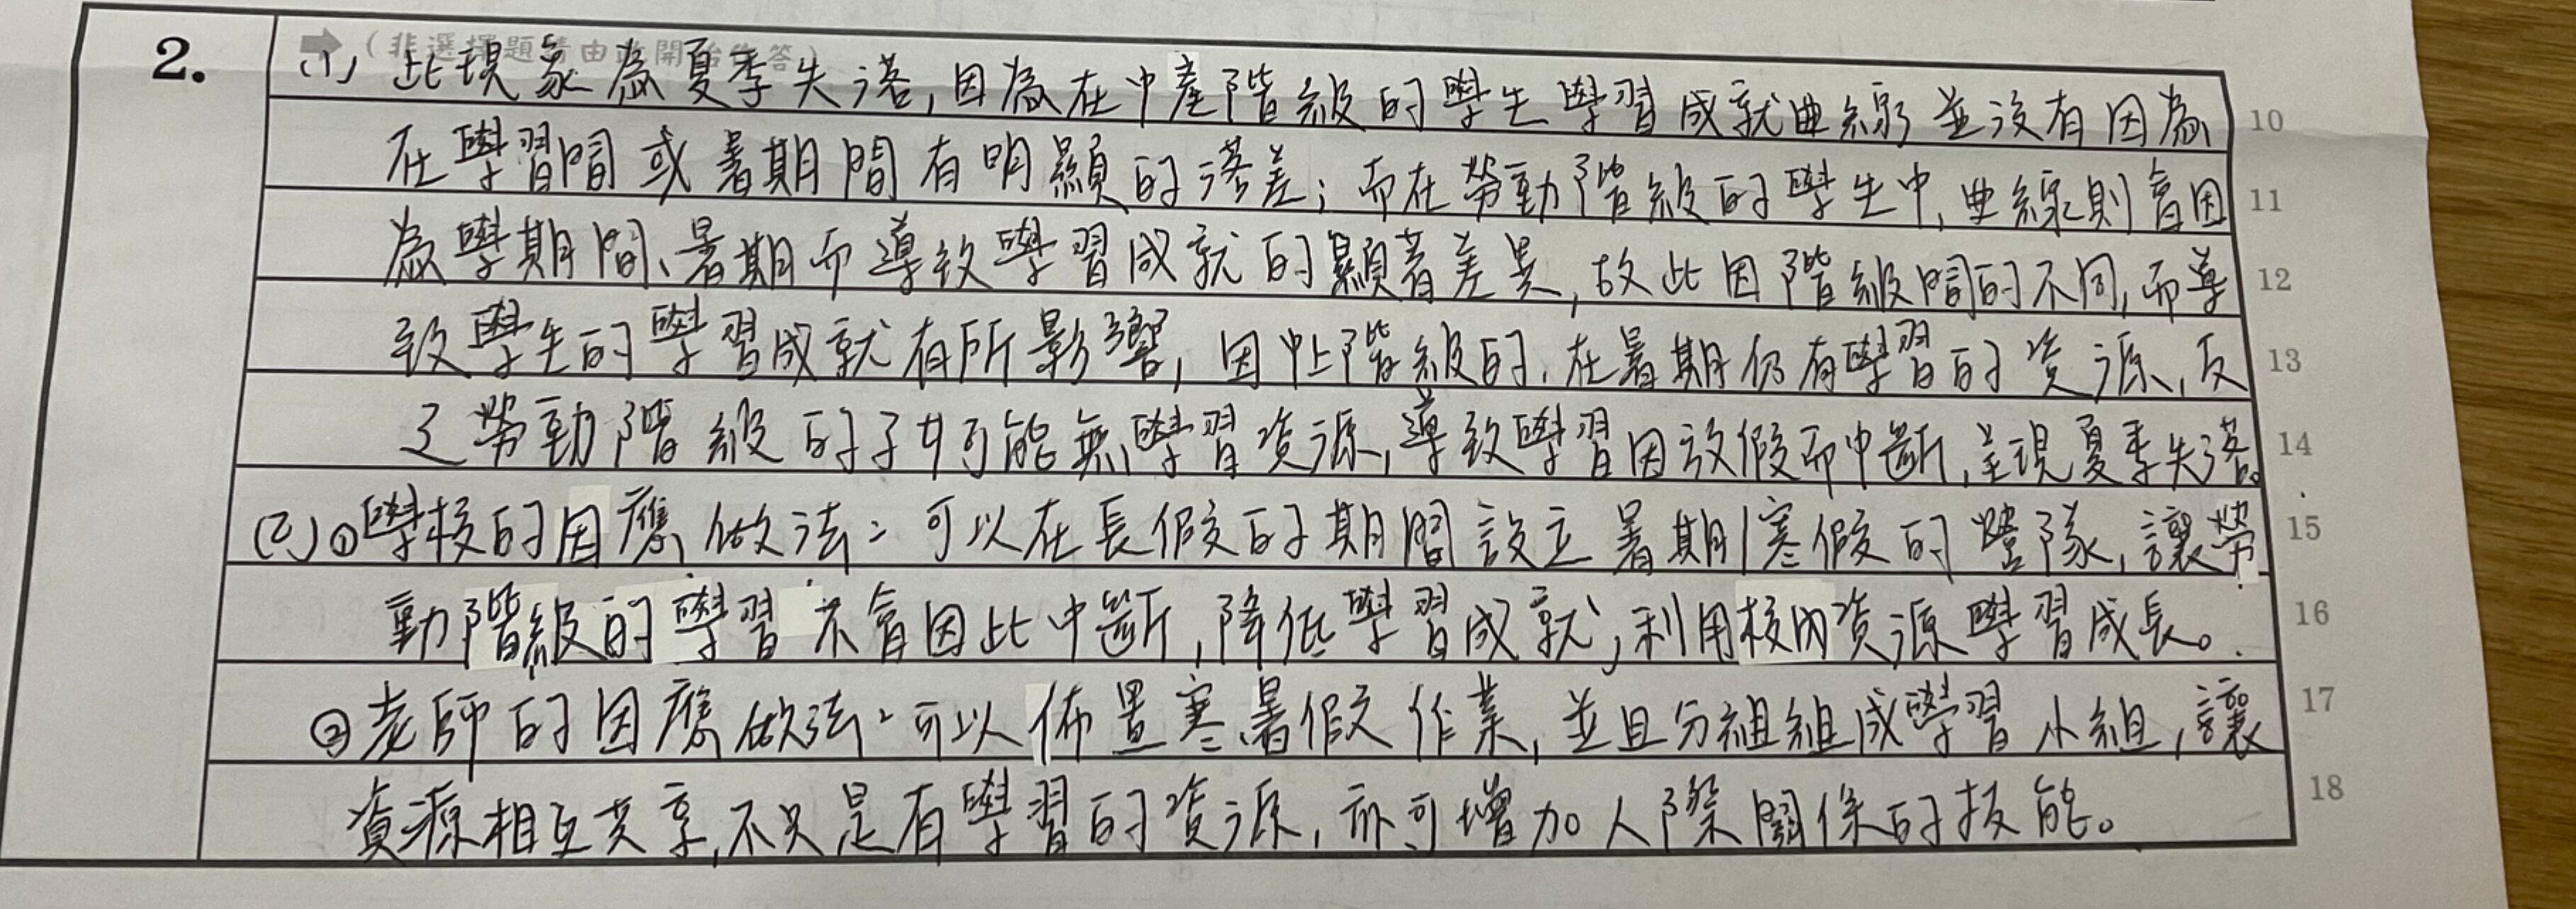 2.
➡(非選擇題請由此開始作答)
(1) 此現象為夏季失落,因為在中產階級的學生學習成就曲線並沒有因為 10
在學習間或暑期間有明顯的落差;而在勞動階級的學生中,曲線則會因 11
為學期間、暑期而導致學習成就的顯著差異,故此因階級間的不同,而導 12
致學生的學習成就有所影響,因中上階級的,在暑期仍有學習的資源,反 13
之勞動階級的子女可能無學習資源,導致學習因放假而中斷,呈現夏季失落。 14
(2)①學校的因應做法:可以在長假的期間設立暑期/寒假的營隊,讓勞 15
動階級的學習不會因此中斷,降低學習成就,利用校內資源學習成長。 16
②老師的因應做法:可以佈置寒暑假作業,並且分組組成學習小組,讓 17
資源相互共享,不只是有學習的資源,亦可增加人際關係的技能。 18